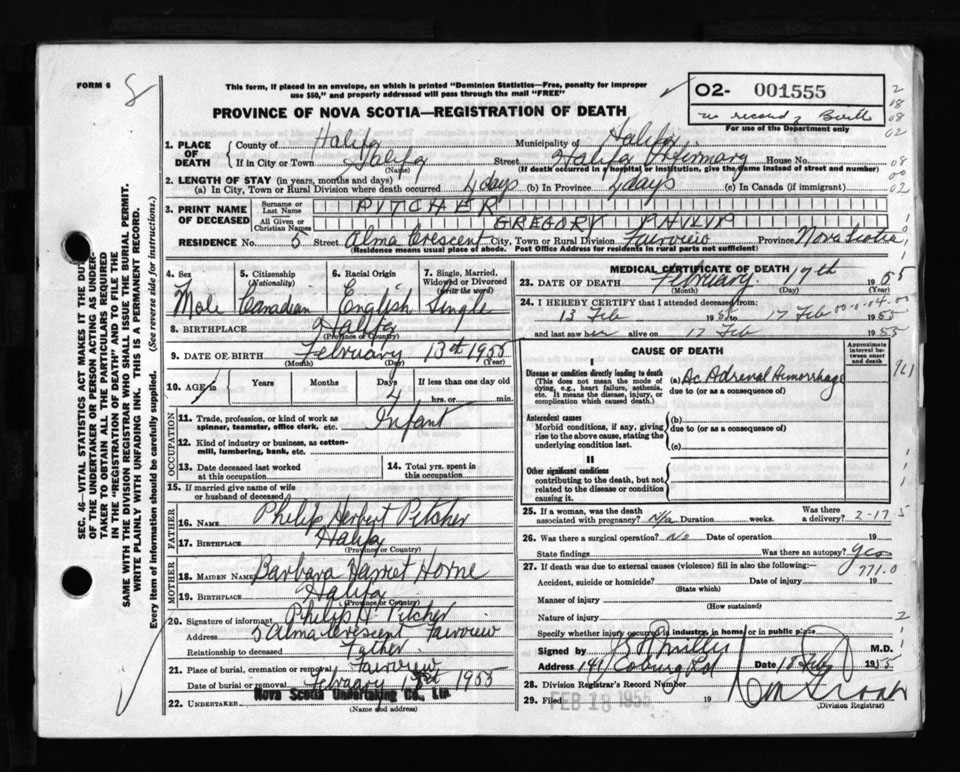 FORM 6
This form, if placed in an envelope, on which is printed "Dominion Statistics—Free, penalty for improper
use $50," and properly addressed will pass through the mail "FREE"
PROVINCE OF NOVA SCOTIA—REGISTRATION OF DEATH
O2- 001555
no record of Birth
For use of the Department only
SEC. 46—VITAL STATISTICS ACT MAKES IT THE DUTY
OF THE UNDERTAKER OR PERSON ACTING AS UNDER-
TAKER TO OBTAIN ALL THE PARTICULARS REQUIRED
IN THE "REGISTRATION OF DEATH" AND TO FILE THE
SAME WITH THE DIVISION REGISTRAR WHO SHALL ISSUE THE BURIAL PERMIT.
WRITE PLAINLY WITH UNFADING INK. THIS IS A PERMANENT RECORD.
Every item of information should be carefully supplied. (See reverse side for instructions.)
1. PLACE OF DEATH
County of Halifax Municipality of Halifax
If in City or Town Halifax Street Halifax Infirmary House No.
(Name) (If death occurred in a hospital or institution, give the name instead of street and number)
2. LENGTH OF STAY (in years, months and days)
(a) In City, Town or Rural Division where death occurred 4 days (b) In Province 4 days (c) In Canada (if immigrant)
3. PRINT NAME OF DECEASED
Surname or Last Name PITCHER
All Given or Christian Names GREGORY PHILIP
RESIDENCE No. 5 Street Alma Crescent City, Town or Rural Division Fairview Province Nova Scotia
(Residence means usual place of abode. Post Office Address for residents in rural parts not sufficient)
4. Sex Male
5. Citizenship (Nationality) Canadian
6. Racial Origin English
7. Single, Married, Widowed or Divorced (Write the word) Single
8. BIRTHPLACE Halifax
(Province or Country)
9. DATE OF BIRTH February 13st 1955
(Month) (Day) (Year)
10. AGE Years Months Days 4 If less than one day old
hrs. or min.
OCCUPATION
11. Trade, profession, or kind of work as
spinner, teamster, office clerk, etc. Infant
12. Kind of industry or business, as cotton-
mill, lumbering, bank, etc.
13. Date deceased last worked
at this occupation
14. Total yrs. spent in
this occupation
15. If married give name of wife
or husband of deceased
FATHER
16. NAME Philip Herbert Pitcher
17. BIRTHPLACE Halifax
(Province or Country)
MOTHER
18. MAIDEN NAME Barbara Harriet Horne
19. BIRTHPLACE Halifax
(Province or Country)
20. Signature of informant Philip H. Pitcher
Address 5 Alma Crescent, Fairview
Relationship to deceased Father
21. Place of burial, cremation or removal Fairview
Date of burial or removal February 1955
22. UNDERTAKER Nova Scotia Undertaking Co., Ltd.
(Name and address)
MEDICAL CERTIFICATE OF DEATH
23. DATE OF DEATH February 17th 1955
(Month) (Day) (Year)
24. I HEREBY CERTIFY that I attended deceased from:
13 Feb 1955 to 17 Feb 1955
and last saw her alive on 17 Feb 1955
CAUSE OF DEATH
Approximate interval between onset and death
I
Disease or condition directly leading to death
(This does not mean the mode of dying, e.g., heart failure, asthenia, etc. It means the disease, injury, or complication which caused death.)
(a) Ac Adrenal Hemorrhage
due to (or as a consequence of)
Antecedent causes
Morbid conditions, if any, giving rise to the above cause, stating the underlying condition last.
(b)
due to (or as a consequence of)
(c)
II
Other significant conditions
contributing to the death, but not related to the disease or condition causing it
25. If a woman, was the death
associated with pregnancy? N/a Duration weeks. Was there a delivery? 2-17-5
26. Was there a surgical operation? No Date of operation 19
State findings Was there an autopsy? Yes
27. If death was due to external causes (violence) fill in also the following:— 771.0
Accident, suicide or homicide? Date of injury 19
(State which)
Manner of injury
(How sustained)
Nature of injury
Specify whether injury occurred in industry, in home, or in public place
Signed by Miller M.D.
Address 141 Coburg Rd Date 18 Feb 1955
28. Division Registrar's Record Number
29. Filed FEB 18 1955 19
(Division Registrar)